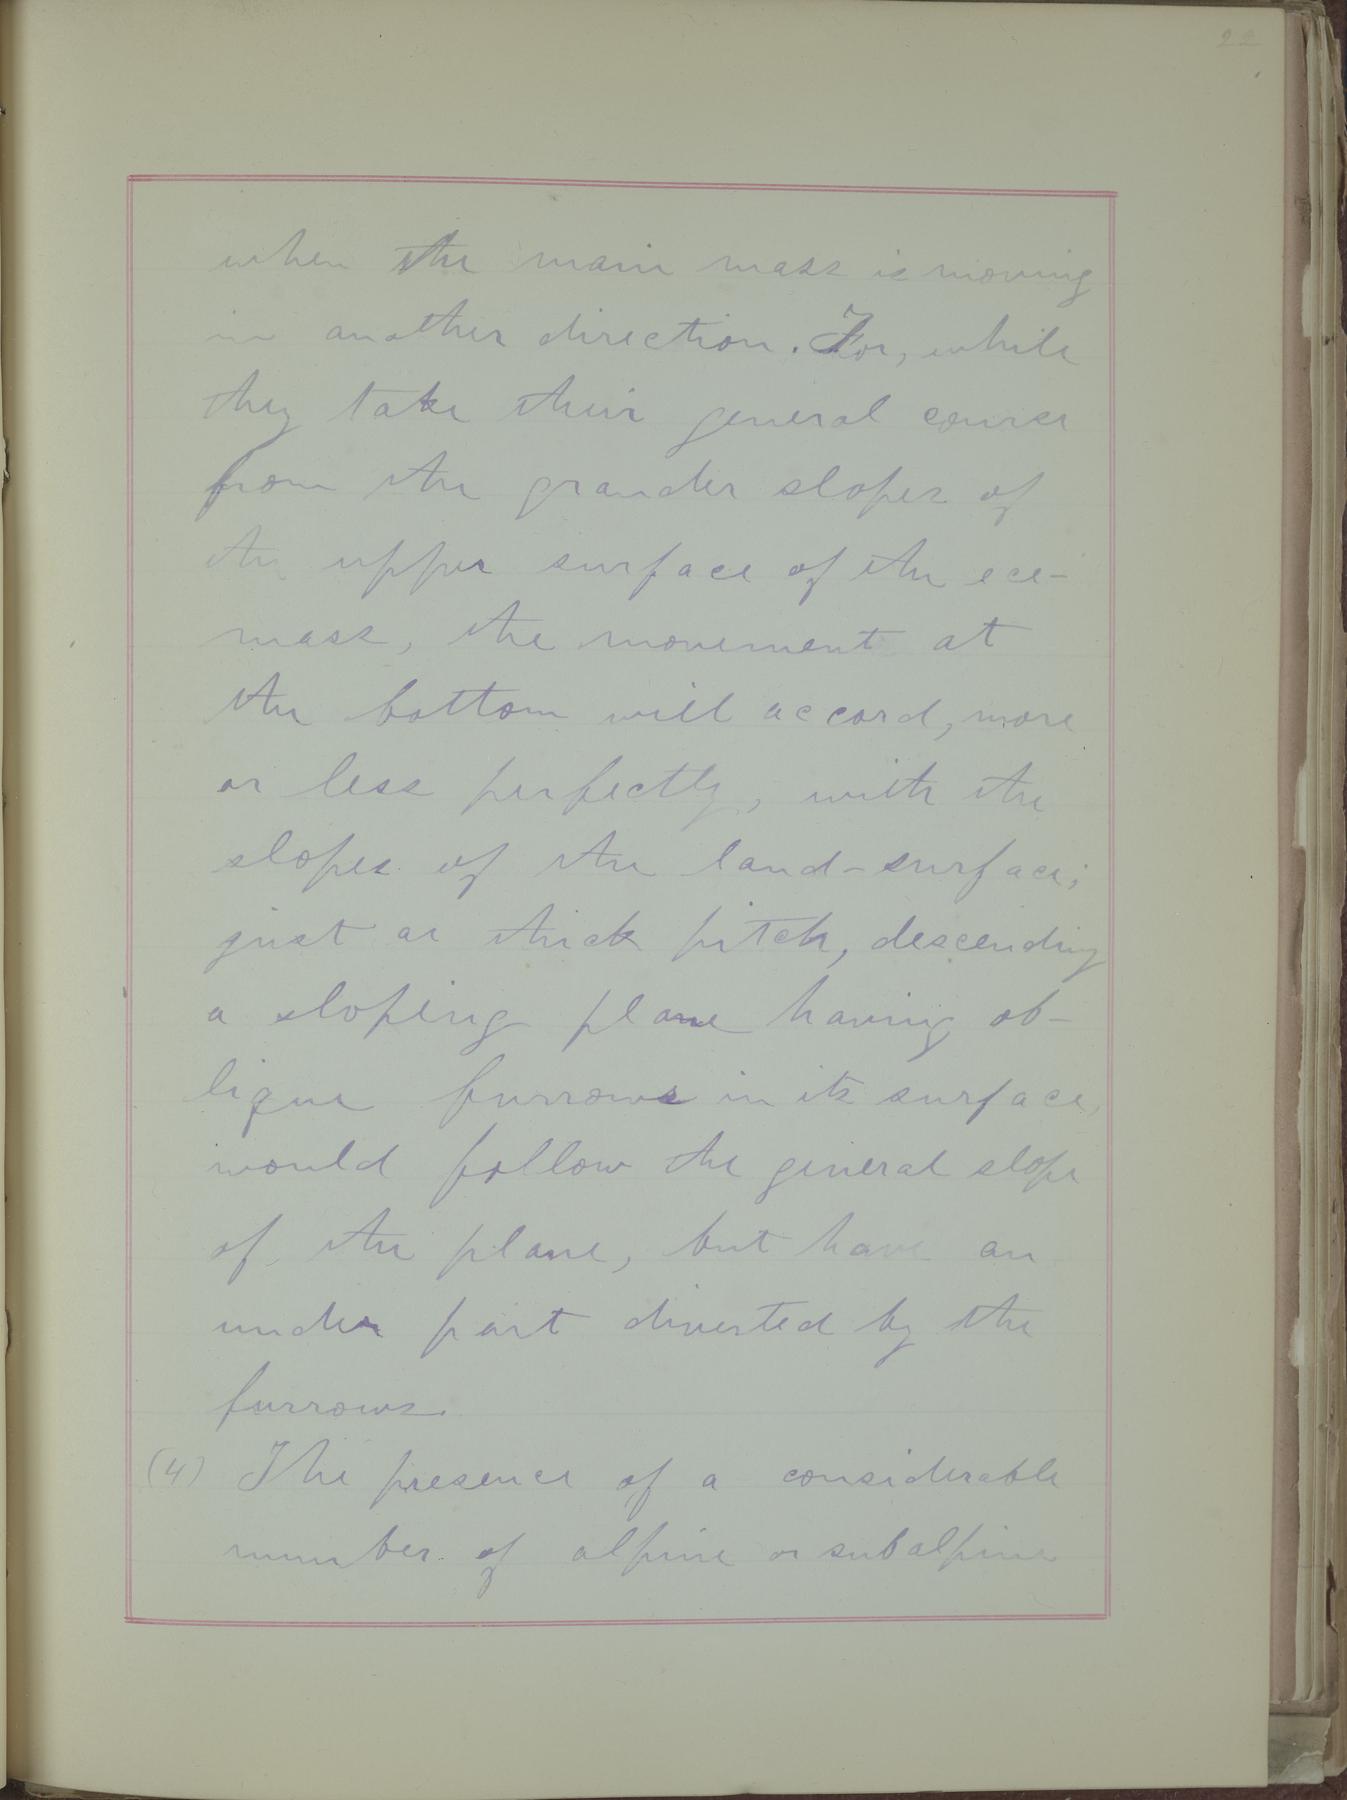 22
when the main mass is moving
in another direction. For, while
they take their general course
from the grander slopes of
the upper surface of the ice-
mass, the movement at
the bottom will accord, more
or less perfectly, with the
slopes of the land-surface;
just as thick pitch, descending
a sloping plane having ob-
lique furrows in its surface,
would follow the general slope
of the plane, but have an
under part diverted by the
furrows.
(4) The presence of a considerable
number of alpine or subalpine